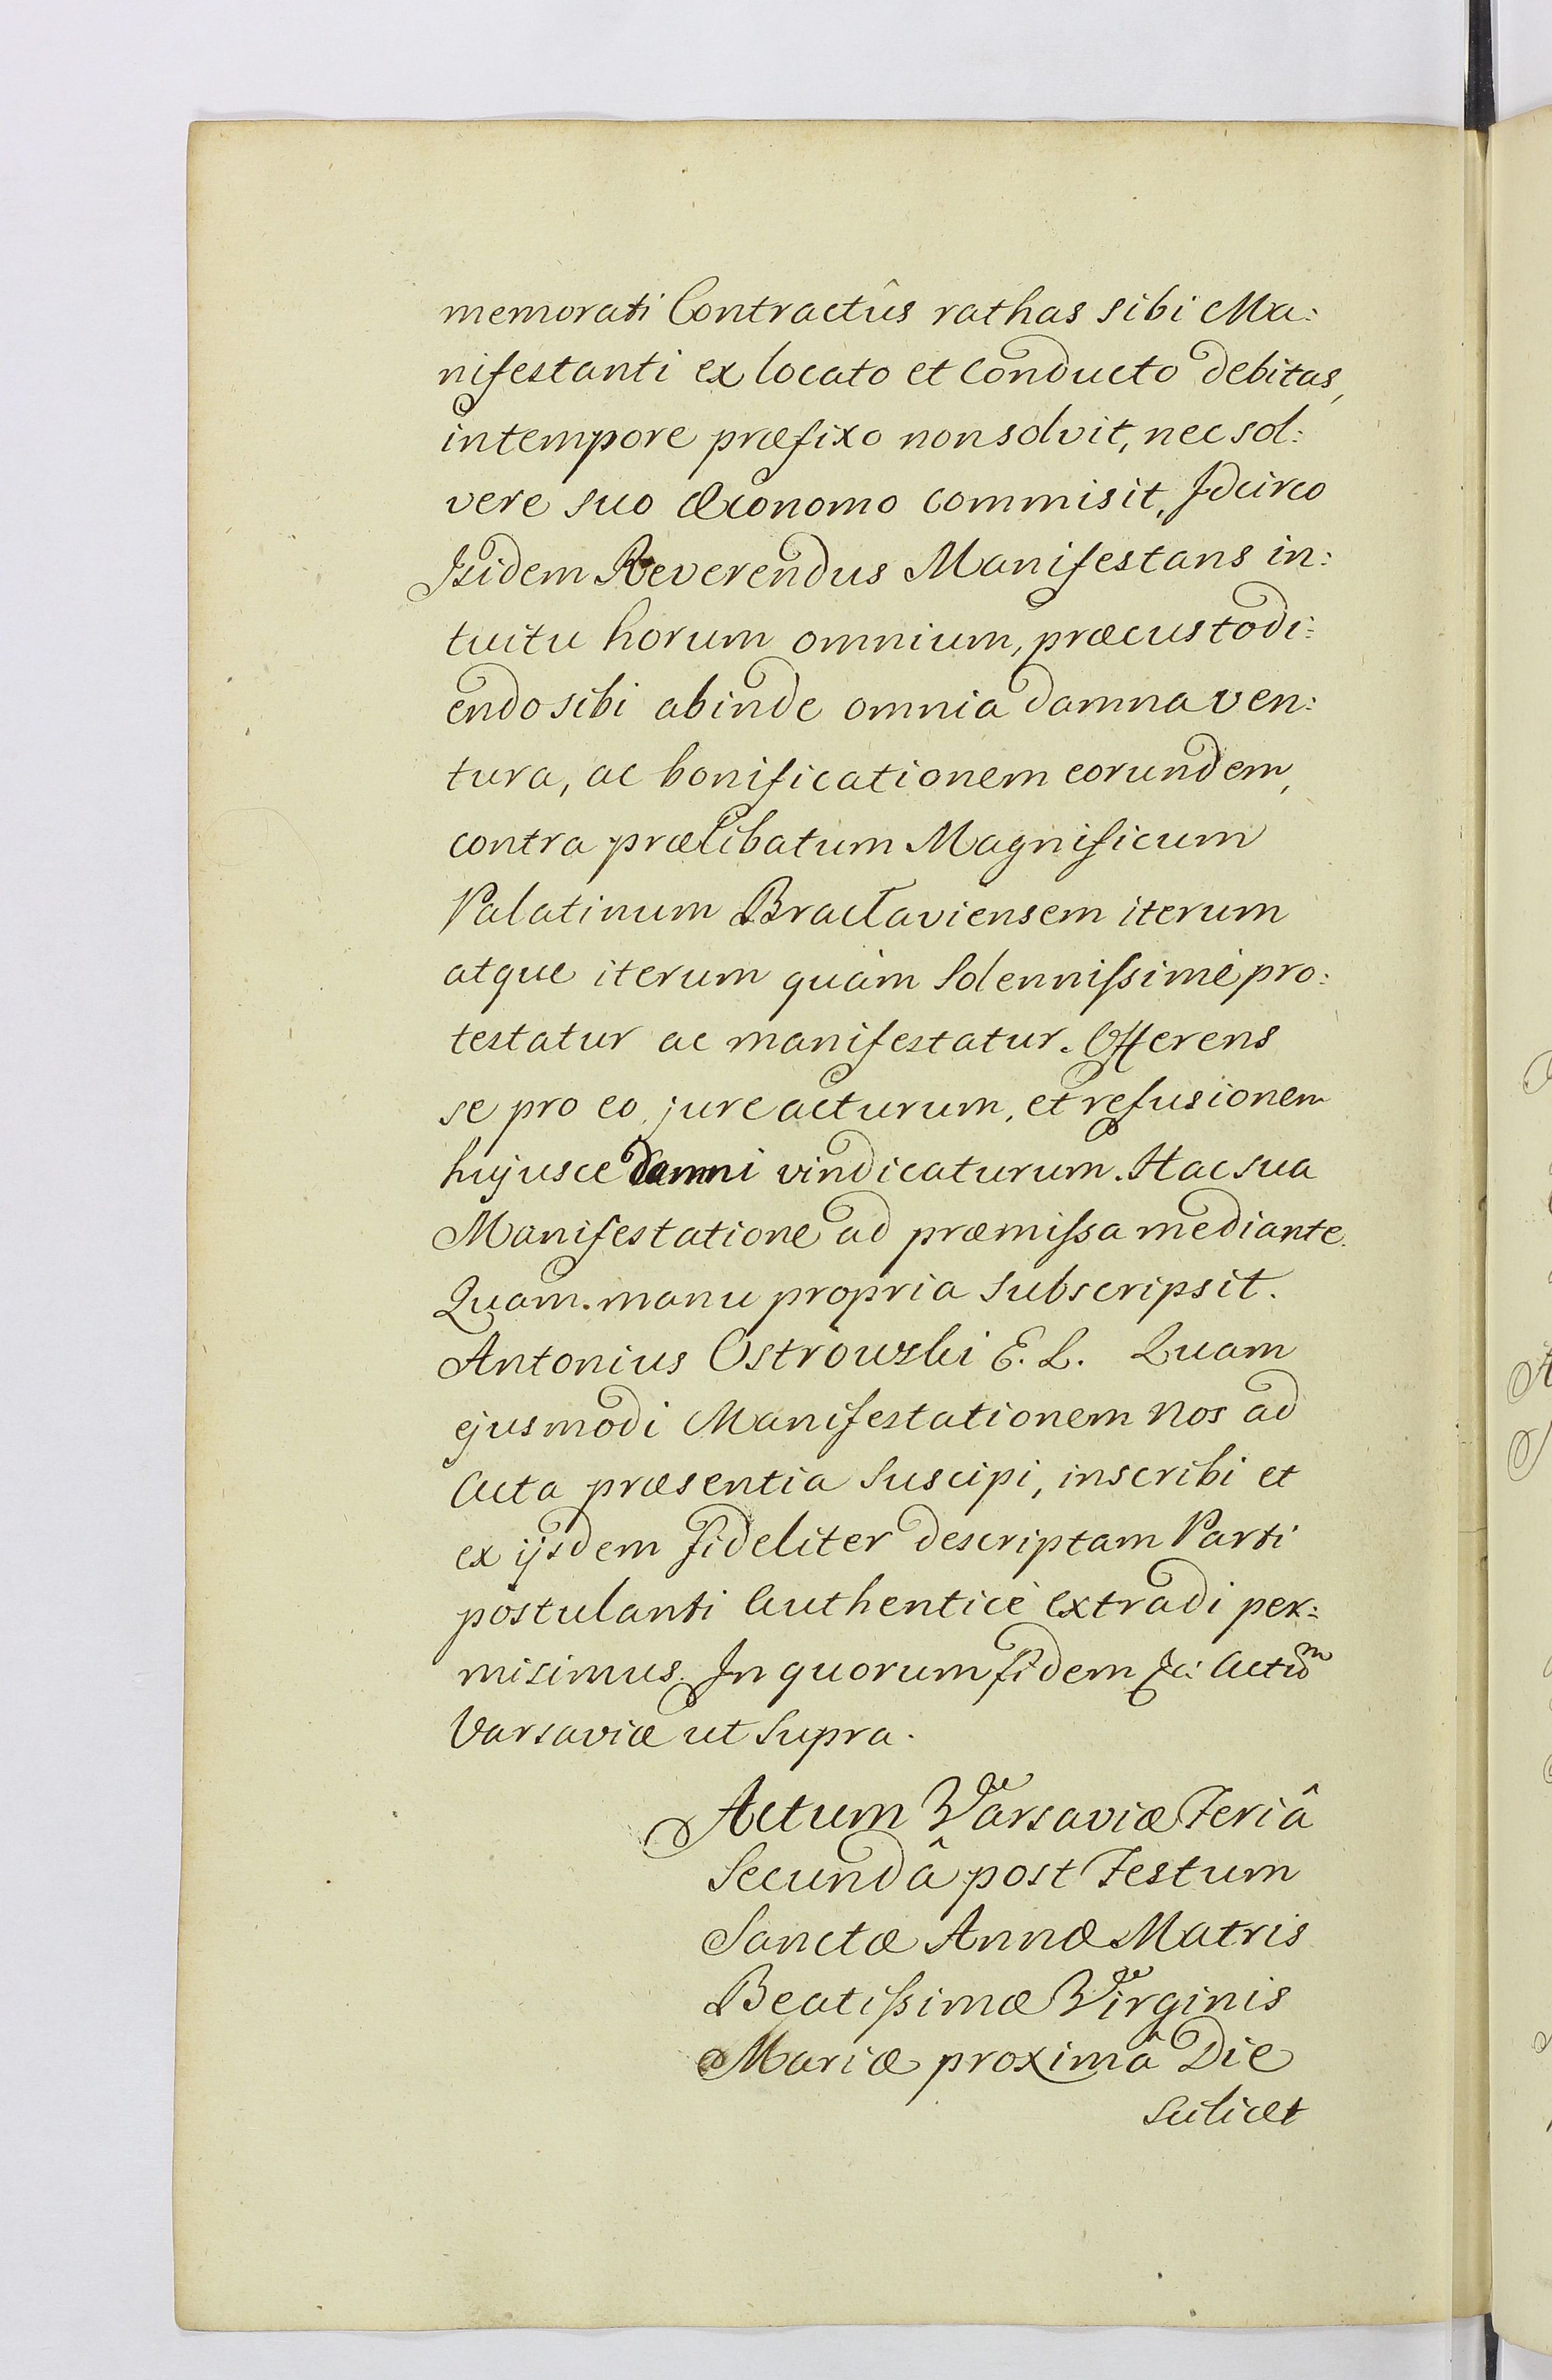 memorati Contractûs rathas sibi Ma:
nifestanti ex locato et Conducto debitas,
in tempore præfixo non solvit, nec sol:
vere suo Œconomo commisit, Idcirco
Isidem Reverendus Manifestans in:
tuitu horum omnium, præcustodi:
endo sibi abinde omnia damna ven:
tura, ac bonificationem eorundem,
contra prælibatum Magnificum
Palatinum Braclaviensem iterum
atque iterum quàm solennissimè pro:
testatur ac manifestatur. Offerens
se pro eo jure acturum, et refusionem
hujusce damni vindicaturum. Hac sua
Manifestatione ad præmissa mediante.
Quam manu propria subscripsit.
Antonius Ostrowski E. L. Quam
ejusmodi Manifestationem Nos ad
Acta præsentia suscipi, inscribi et
ex ijsdem fideliter descriptam Parti
postulanti Authenticè extradi per:
misimus. In quorum fidem &c: Actũm
Varsaviæ ut supra.
Actum Varsaviæ Feriâ
Secundâ post Festum
Sanctæ Annæ Matris
Beatissimæ Virginis
Mariæ proximâ Die
scilicet